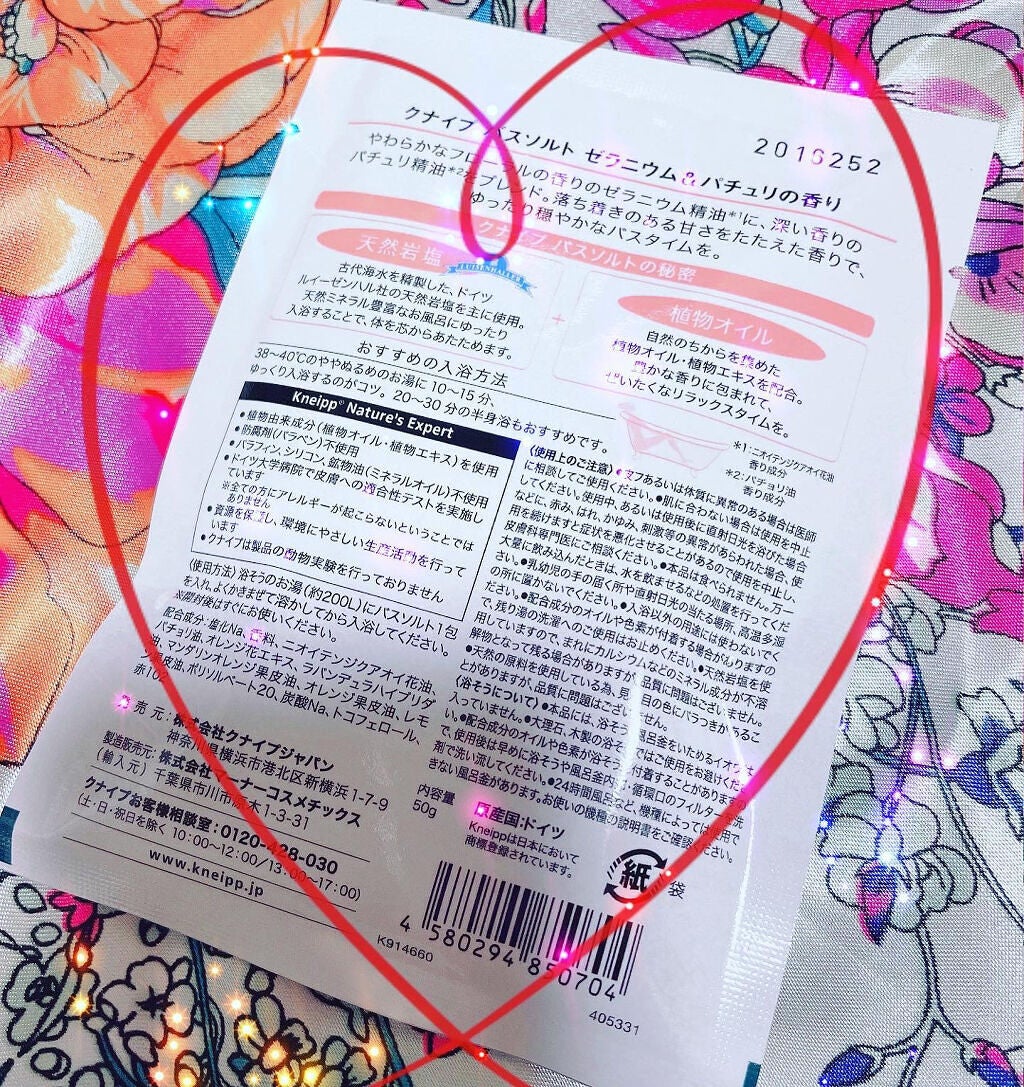 2016252
クナイプ バスソルト ゼラニウム&パチュリの香り
やわらかなフローラルの香りのゼラニウム精油*1に、深い香りの
パチュリ精油*2をブレンド。落ち着きのある甘さをたたえた香りで、
ゆったり穏やかなバスタイムを。
クナイプ バスソルトの秘密
天然岩塩
LUISENHALLER
古代海水を精製した、ドイツ
ルイーゼンハル社の天然岩塩を主に使用。
天然ミネラル豊富なお風呂にゆったり
入浴することで、体を芯からあたためます。
+
植物オイル
自然のちからを集めた
植物オイル・植物エキスを配合。
豊かな香りに包まれて、
ぜいたくなリラックスタイムを。
おすすめの入浴方法
38〜40℃のややぬるめのお湯に 10〜15 分、
ゆっくり入浴するのがコツ。20〜30 分の半身浴もおすすめです。
*1:ニオイテンジクアオイ花油
香り成分
*2:パチョリ油
香り成分
Kneipp® Nature's Expert
●植物由来成分(植物オイル・植物エキス)を使用
●防腐剤(パラベン)不使用
●パラフィン、シリコン、鉱物油(ミネラルオイル)不使用
●ドイツ大学病院で皮膚への適合性テストを実施し
ています
※全ての方にアレルギーが起こらないということでは
ありません
●資源を保護し、環境にやさしい生産活動を行って
います
●クナイプは製品の動物実験を行っておりません
〈使用方法〉浴そうのお湯(約200L)にバスソルト1包
を入れ、よくかきまぜて溶かしてから入浴してください。
※開封後はすぐにお使いください。
配合成分:塩化Na、香料、ニオイテンジクアオイ花油、
パチョリ油、オレンジ花エキス、ラバンデュラハイブリダ
油、マンダリンオレンジ果皮油、オレンジ果皮油、レモ
ン果皮油、ポリソルベート20、炭酸Na、トコフェロール、
赤102
〈使用上のご注意〉●皮フあるいは体質に異常のある場合は医師
に相談してご使用ください。●肌に合わない場合は使用を中止
してください。使用中、あるいは使用後に直射日光を浴びた場合
などに、赤み、はれ、かゆみ、刺激等の異常があらわれた場合、使
用を続けますと症状を悪化させることがあるので使用を中止し、
皮膚科専門医にご相談ください。●本品は食べられません。万一
大量に飲み込んだときは、水を飲ませるなどの処置を行ってくだ
さい。●乳幼児の手の届く所や直射日光の当たる場所、高温多湿
の所に置かないでください。●入浴以外の用途には使わないでく
ださい。●配合成分のオイルや色素が付着する場合がありますの
で、残り湯の洗濯へのご使用はお止めください。●天然岩塩を使
用していますので、まれにカルシウムなどのミネラル成分が不溶
解物となって残る場合がありますが、品質に問題はございません。
●天然の原料を使用している為、見た目の色にバラつきがあるこ
とがありますが、品質に問題はございません。
〈浴そうについて〉●本品には、浴そう・風呂釜をいためるイオウは
入っていません。●大理石、木製の浴そうではご使用をお避けください。
●配合成分のオイルや色素が浴そうに付着することがありますの
で、使用後は早めに浴そうや風呂釜内・循環口のフィルターを洗
剤で洗い流してください。●24時間風呂など、機種によっては使用で
きない風呂釜があります。お使いの機種の説明書をご確認ください。
発売元:株式会社クナイプジャパン
神奈川県横浜市港北区新横浜 1-7-9
製造販売元:株式会社マーナーコスメチックス
(輸入元) 千葉県市川市原木 1-3-31
クナイプお客様相談室:0120-428-030
(土・日・祝日を除く 10:00〜12:00/13:00〜17:00)
www.kneipp.jp
内容量
50g
原産国:ドイツ
Kneippは日本において
商標登録されています。
紙
袋
K914660
4 580294 850704
405331